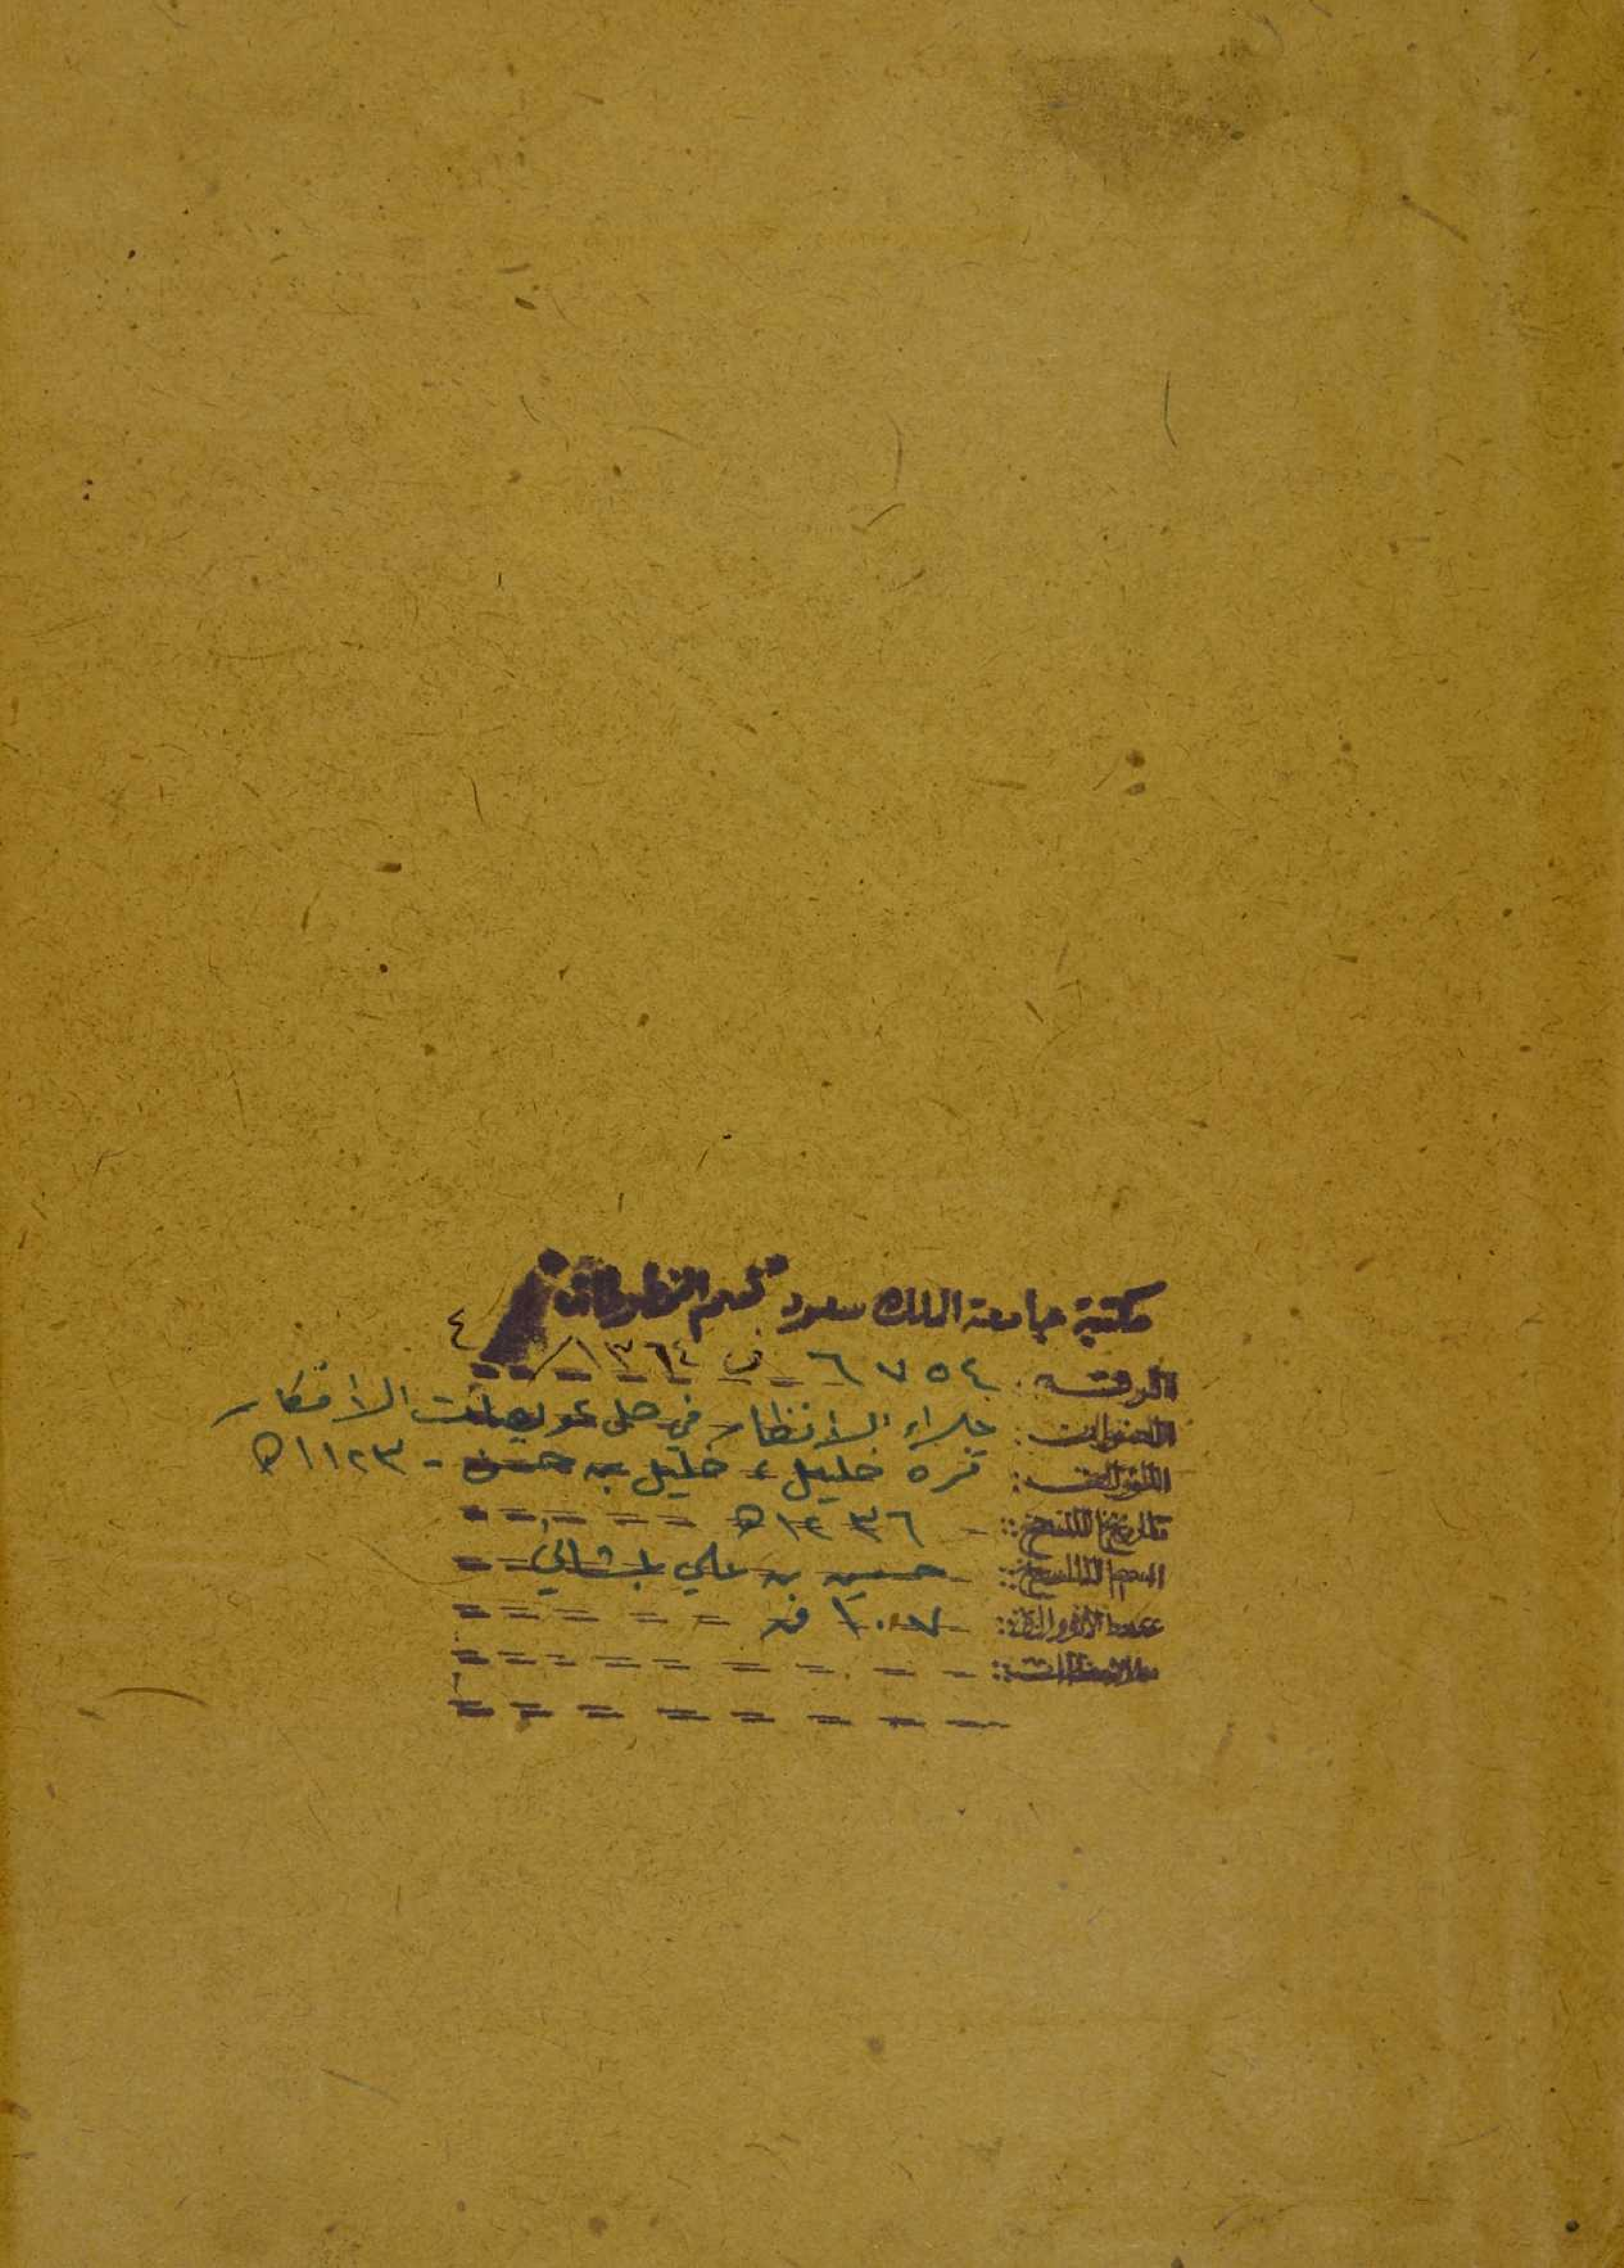 مكتبة جامعة الملك سعود "قسم المخطوطات"
الرقم: ٦٧٥٤ ف ١٣٦٤/ ٤
العنوان: جلاء الانظار في حل عويصات الافكار
المؤلف: قره خليل، خليل بن حسن - ١١٢٣هـ
تاريخ النسخ: ١٢٣٦هـ
اسم الناسخ: حسين بن علي
عدد الأوراق: ١٠٧ ق
ملاحظات: